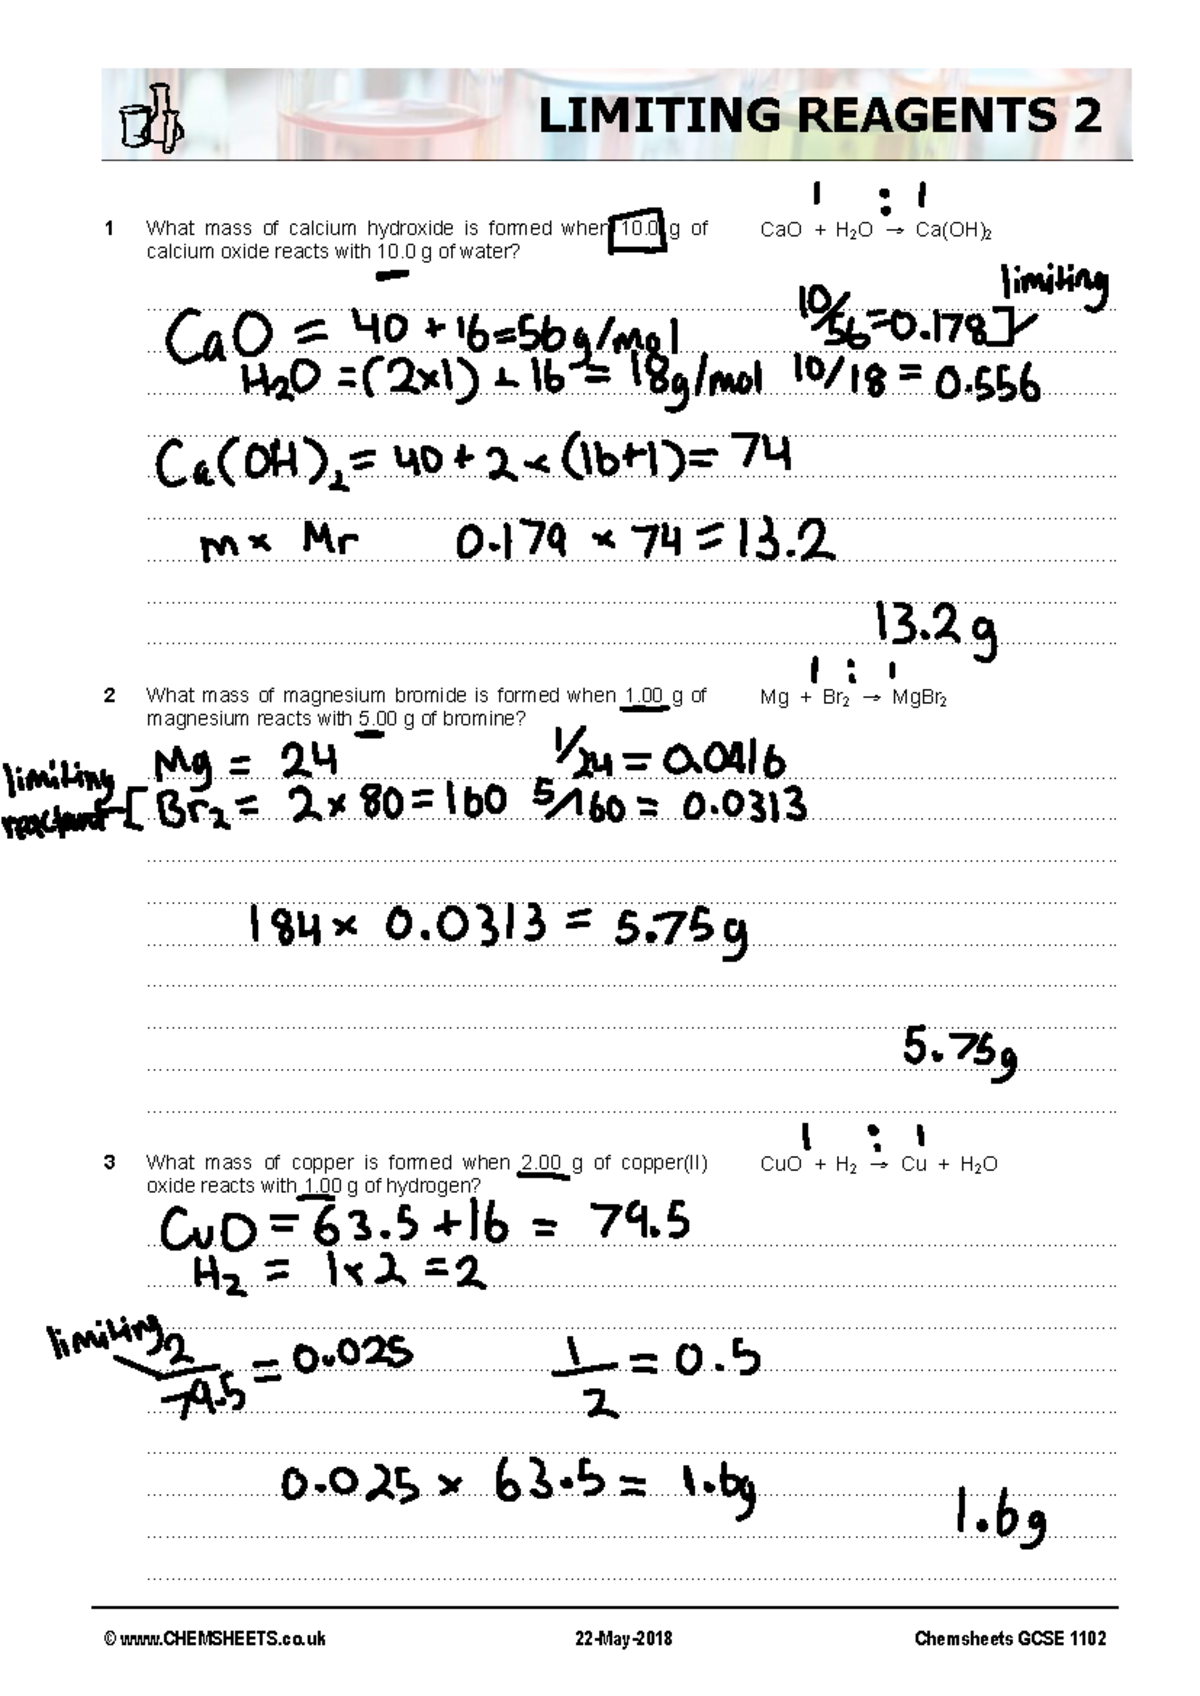 LIMITING REAGENTS 2
1 : 1
1 What mass of calcium hydroxide is formed when 10.0 g of
calcium oxide reacts with 10.0 g of water?
CaO + H₂O → Ca(OH)₂
limiting
CaO = 40 + 16 = 56 g/mol
10/56 = 0.178
H₂O = (2x1) + 16 = 18g/mol
10/18 = 0.556
Ca(OH)₂ = 40 + 2 × (16+1) = 74
m × Mr 0.179 × 74 = 13.2
13.2 g
1 : 1
2 What mass of magnesium bromide is formed when 1.00 g of
magnesium reacts with 5.00 g of bromine?
Mg + Br₂ → MgBr₂
limiting
reactant
Mg = 24
1/24 = 0.0416
Br₂ = 2 × 80 = 160
5/160 = 0.0313
184 × 0.0313 = 5.75g
5.75g
1 : 1
3 What mass of copper is formed when 2.00 g of copper(II)
oxide reacts with 1.00 g of hydrogen?
CuO + H₂ → Cu + H₂O
CuO = 63.5 + 16 = 79.5
H₂ = 1 × 2 = 2
limiting
2/79.5 = 0.025
1/2 = 0.5
0.025 × 63.5 = 1.6g
1.6g
© www.CHEMSHEETS.co.uk 22-May-2018 Chemsheets GCSE 1102